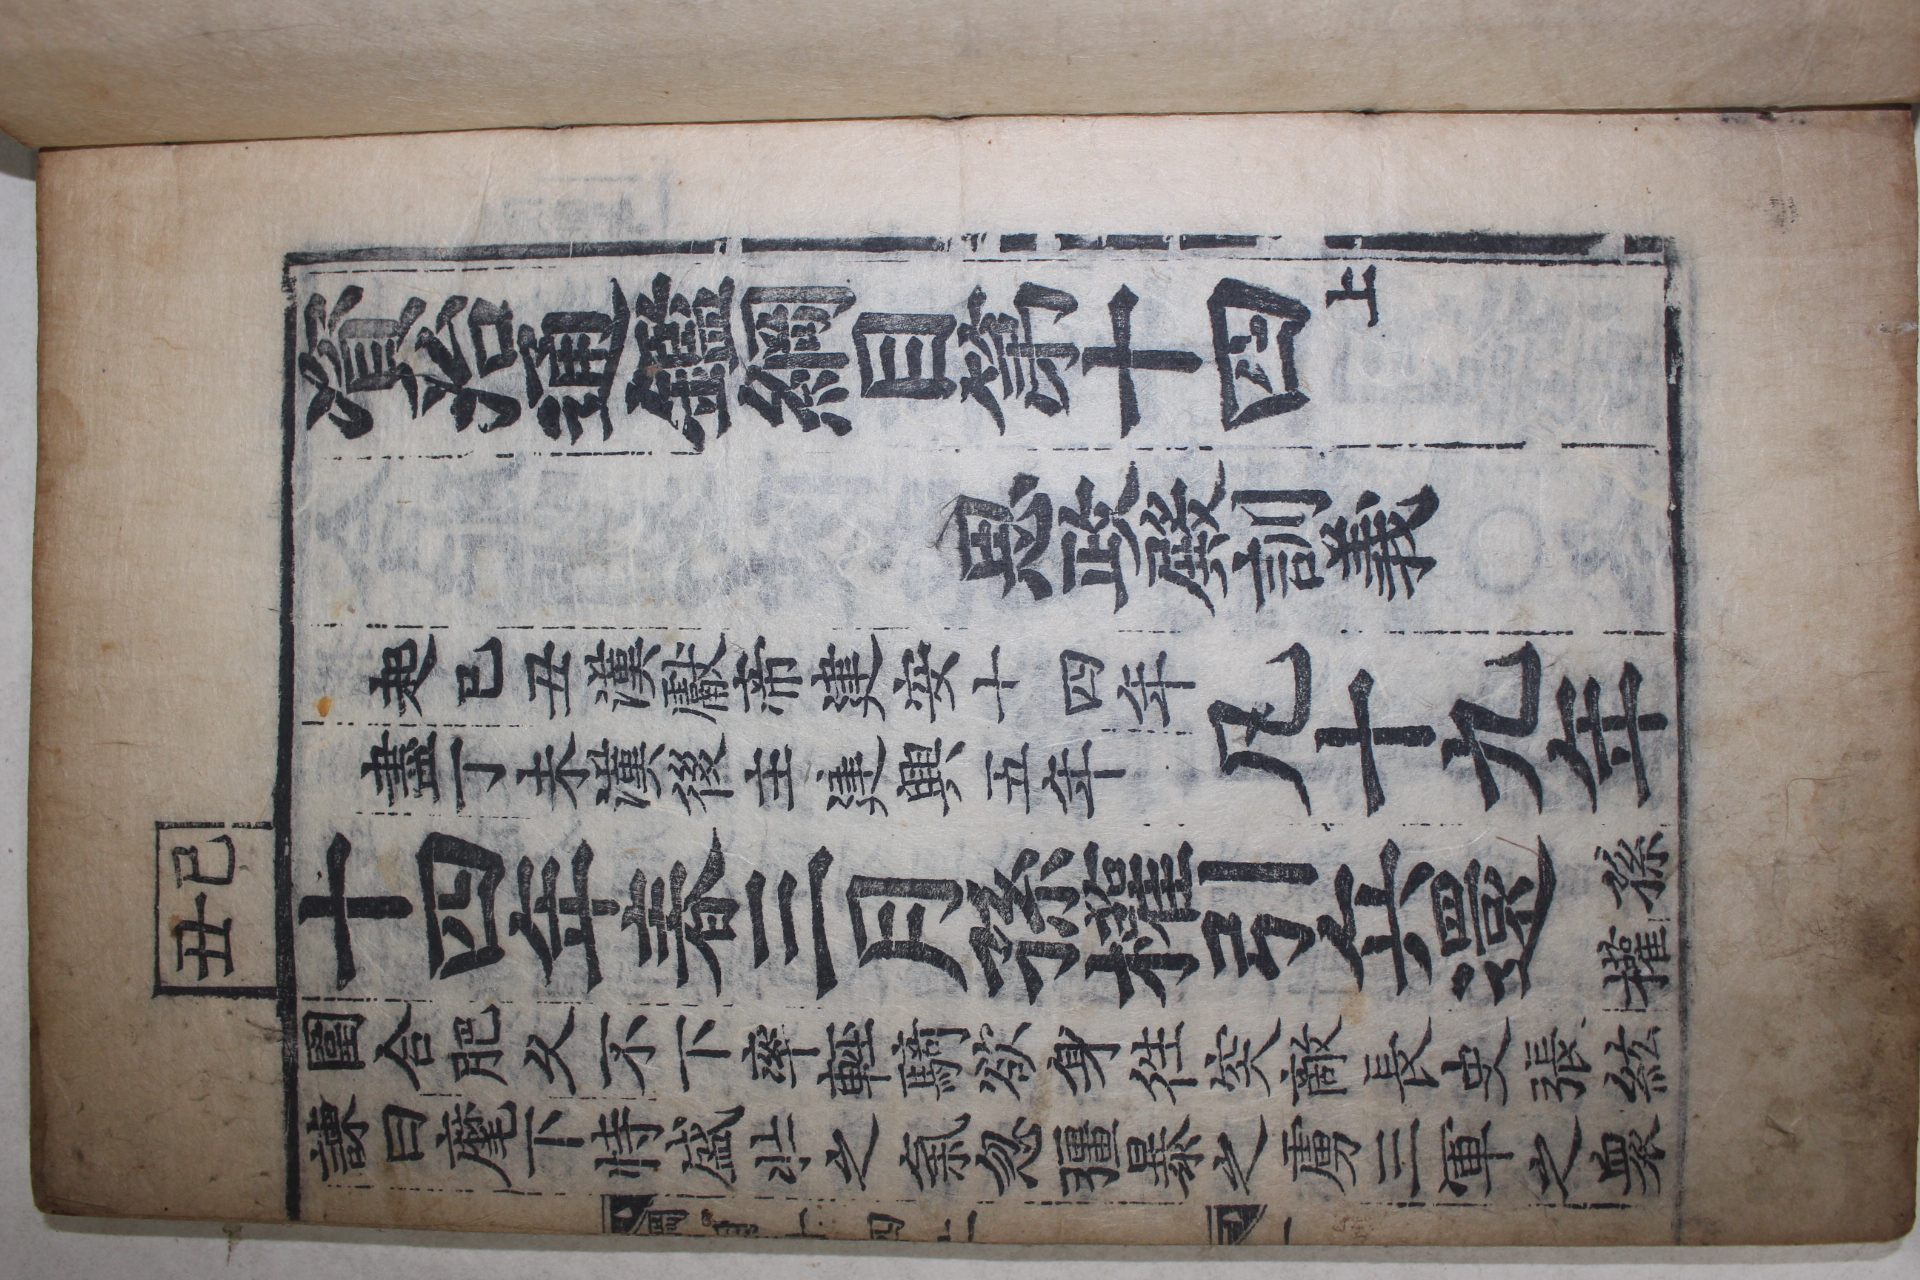 己丑
資治通鑑綱目第十四上
思政殿訓義
起己丑漢獻帝建安十四年
盡丁未漢後主建興五年
凡十九年
十四年春三月孫權引兵還
孫
權
圍合肥久不下率輕騎欲身往突敵長史張紘
諫曰麾下恃盛壯之氣忽彊暴之虜三軍之衆